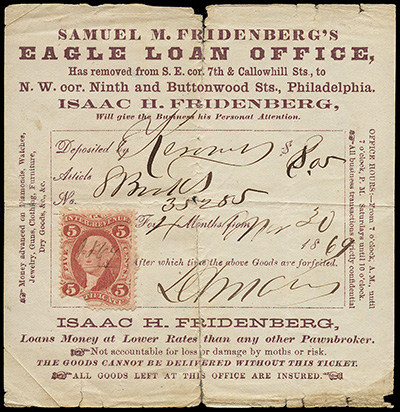 SAMUEL M. FRIDENBERG'S
EAGLE LOAN OFFICE,
Has removed from S. E. cor. 7th & Callowhill Sts., to
N. W. cor. Ninth and Buttonwood Sts., Philadelphia.
ISAAC H. FRIDENBERG,
Will give the Business his Personal Attention.
Money advanced on Diamonds, Watches,
Jewelry, Guns, Clothing, Furniture,
Dry Goods, &c., &c.
Deposited by $ 8.05
Article
No. 35285
For Months from 30
1869
After which time the above Goods are forfeited.
5 INTER. REVENUE 5
FIVE CENTS
5 CERTIFICATE 5
OFFICE HOURS:—From 7 o'clock, A. M., until
7 o'clock, P. M. Saturdays until 10 o'clock.
All business transactions strictly confidential
ISAAC H. FRIDENBERG,
Loans Money at Lower Rates than any other Pawnbroker.
Not accountable for loss or damage by moths or risk.
THE GOODS CANNOT BE DELIVERED WITHOUT THIS TICKET.
ALL GOODS LEFT AT THIS OFFICE ARE INSURED.